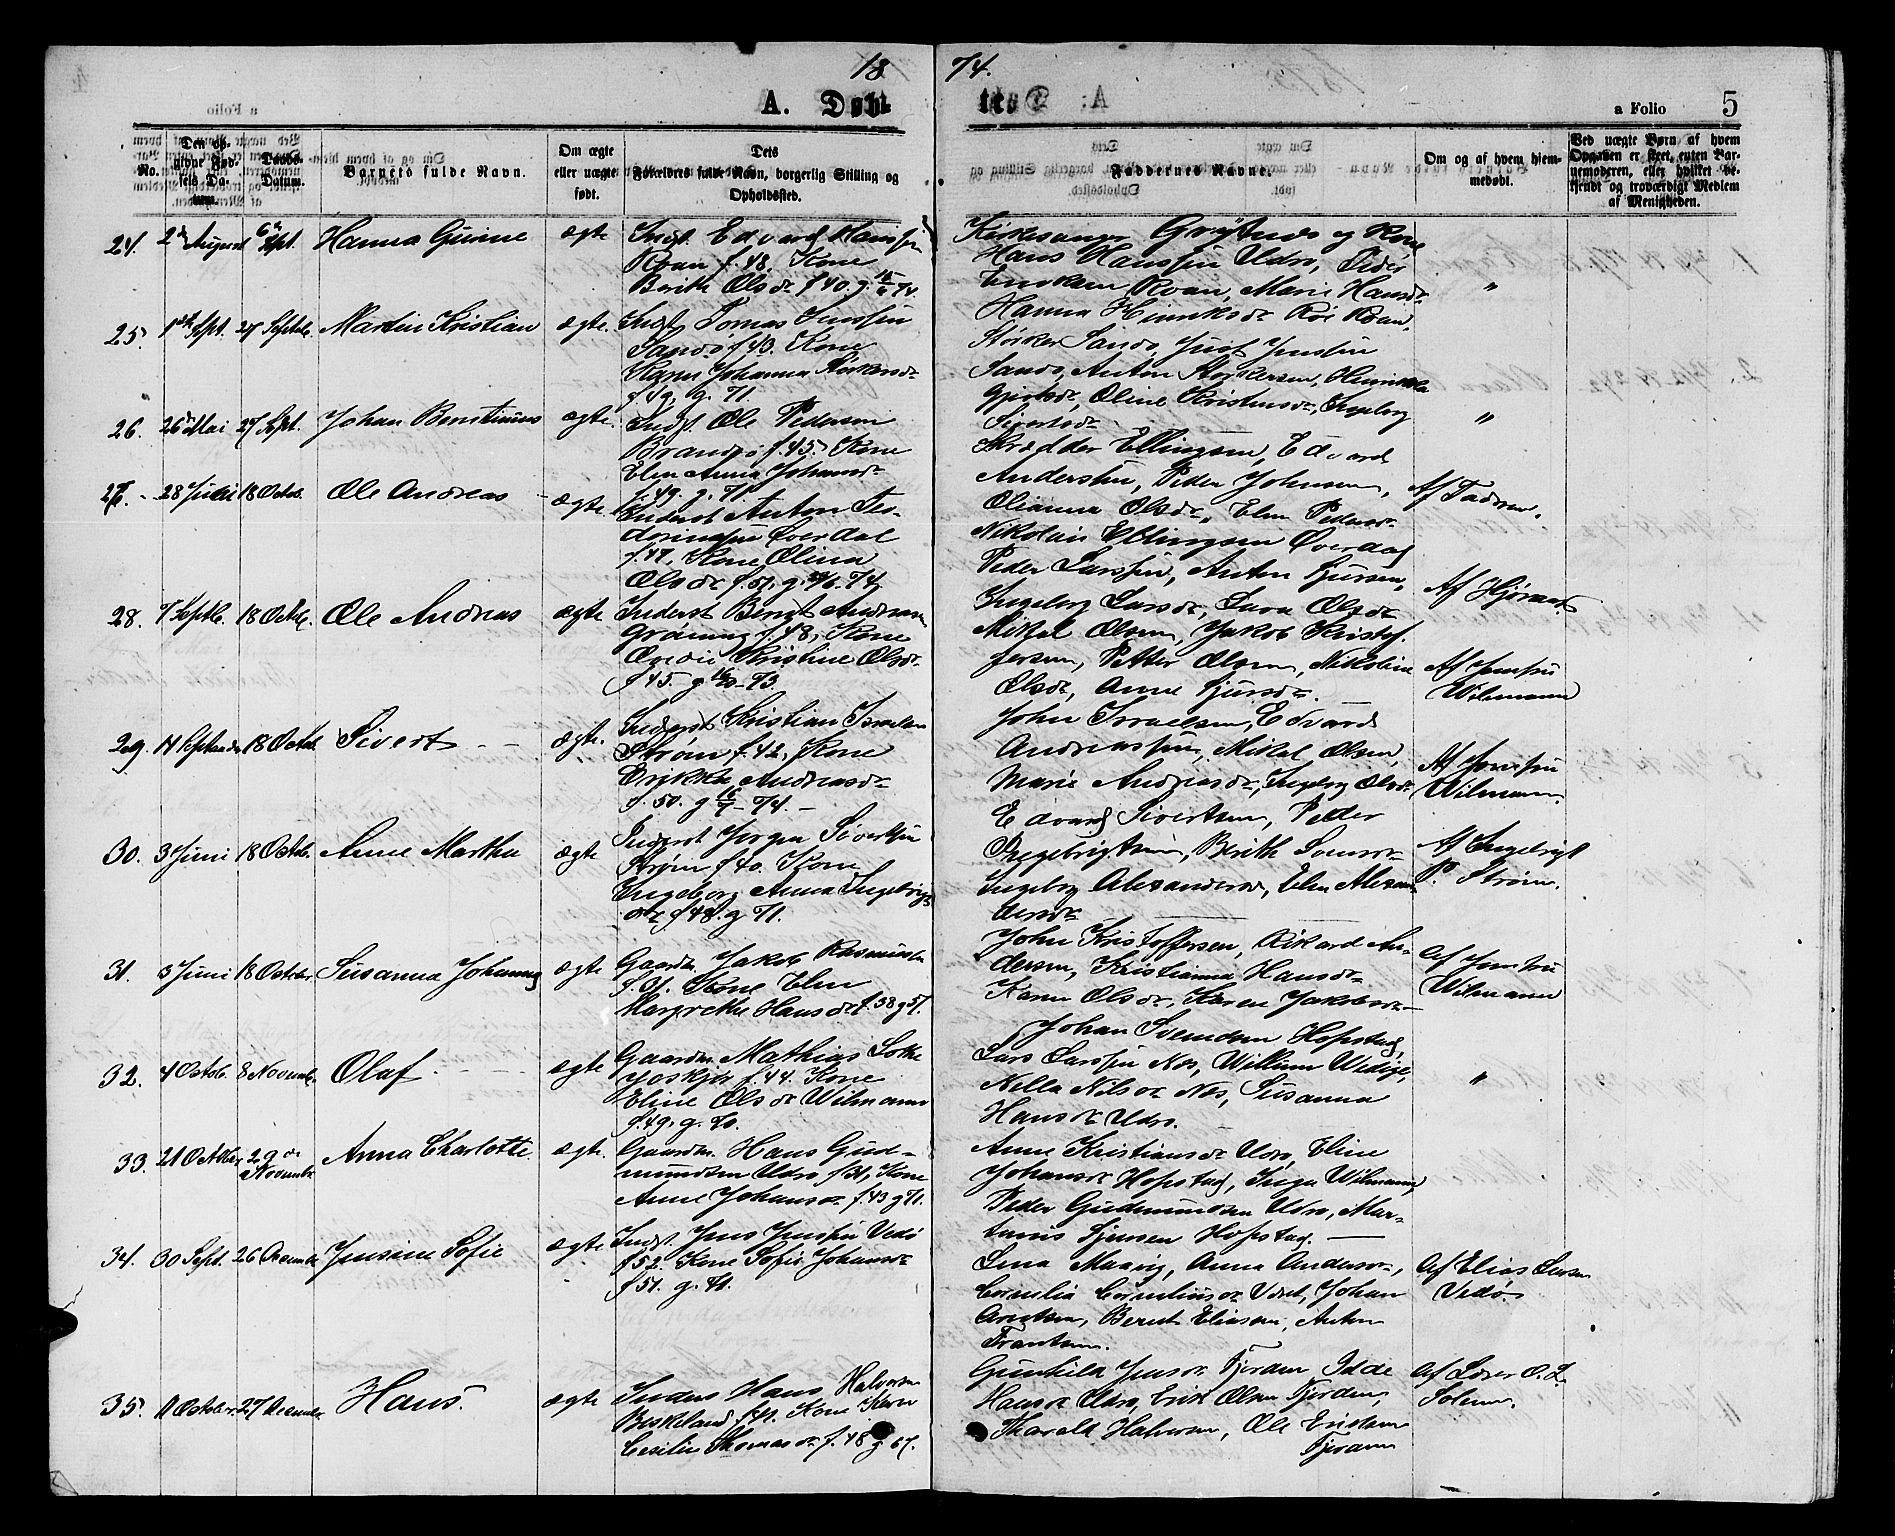 18 74.
A. Døbte.
a Folio 5
No.
Den opgivne Fødsels Datum.
Daabs-Datum.
Barnets fulde Navn.
Om ægte eller uægte født.
Dets Forældres fulde Navn, borgerlig Stilling og Opholdssted.
Faddernes Navne.
Om og af hvem hjemmedøbt.
Ved uægte Børn af hvem Opgaven er skeet, enten Barnemoderen, eller hvilket bekjendt og troværdigt Medlem af Menigheden.
24. 2de August 6te Spt. Hanna Gurine ægte Indst. Edvard Hanssen
Roan f. 48, Kone
Berith Olsdr f 40. g. 74.
Kirkesanger og Kone
Hans Hanssen Udro, Peder
Roan, Marie Hansdr
Hanna Hinriksdr Roan.
"
25. 1ste Spt. 27 Septb. Martin Kristian ægte Indst. Tomas Jenssen
Sandø f 43. Kone
Karen Johanna Størkersdr
f 49. g. 71.
Størker Sandø, Just Jenssen
Sandø, Anton Størkersen,
Oline Kristensdr, Ingeborg
Sivertsdr
"
26. 26 Mai 27 Sept. Johan Berntinus ægte. Indst. Ole Pedersen
Brandsø f. 45. Kone
Elen Anna Johansdr
f. 49. g. 71.
Skrædder Ellingsen, Edvard
Anderssen, Peder Johnsen,
Olianna Olsdr, Elen Pedersdr
27. 28 Juli 18 Octob. Ole Andreas ægte. Inderst Anton
Overdal
f. 47, Kone Olina
Olsdr f. 51. g. 74
Nikolai Ellingsen Overdal
Peder Larssen, Anton Sjursen,
Ingeborg Larsdr, Sara Olsdr
Af Faderen.
28. 7 Septb. 18 Octb. Ole Andreas ægte Inderst Bengt Andreas
Grøning f. 48, Kone
Kristine Olsdr
f 45. g 73.
Mikal Olsen, Jakob Kristof-
fersen, Petter Olsen, Nikoline
Olsdr, Anne Sjursdr.
Af Jomfru
Wilmann
29. 14 September 18 Octob. Sivert ægte. Inderst Kristian Israelsen
Strøm f. 42, Kone
Erikka Andreasdr
f. 50. g 74.
John Israelsen, Edvard
Andreassen, Mikal Olsen,
Marie Andreasdr, Ingeborg Olsdr,
Af Jomfru
Wilmann.
30. 3 Juni 18 Octob. Anne Martha ægte Inderst Jørgen Sivertsen
Strøm f 40. Kone
Ingeborg Anna Ingebrigts
dr f 48. g 71.
Edvard Sivertsen, Peder
Ingebrigtsen, Berith
Ingeborg Alexandersdr, Elen Alexan-
dersdr
Af Ingebrigt
P. Strøm.
31. 3 Juni 18 October Susanna Johanna ægte Gaardm. Jakob Rasmussen
f. 31. Kone Elen
Margrethe Hansdr f 38 g 57.
John Kristoffersen, Rikard An-
dersen, Kristianna Hansdr
Karen Olsdr, Karen Jakobsdr
Af Jomfru
Wilmann
32. 4 Octob. 8 Novemb. Olaf ægte Gaardm. Mathias
f. 44. Kone
Eline Olsdr Wilmann
f. 49. g. 70.
Johan Svendsen Hopstad,
Lars Larssen Nes, William
Nella Nilsdr Nes, Susanna
Hansdr Udro.
"
33. 21 October 29de
Novemb Anna Charlotte. ægte. Gaardm. Hans Gud-
mundsen Udro f 31, Kone
Anne Johansdr f. 43 g 71.
Anne Kristiansdr Udro, Eline
Johansdr Hopstad, Inga Wilmann
Peder Gudmundsen Udro, Mar-
tinus Sjursen Hopstad.
34. 30 Sept. 26 Decemb Jensine Sofie ægte Indst. Jens Jenssen Vedø
f 52. Kone Sofie Johansdr
f 51. g. 71.
Lena Maavig, Anna Andersdr,
Cornelia Corneliusdr, Johan
Arntsen, Bernt Eliasen, Anton
Frantsen.
Af Elias Larsen
Vedø.
35. 11 October 27 Decembr Hans. ægte Inders Hans Halvorsen
f 41. Kone Karen
Cecilie Thomasdr f. 48 g 67.
Gunhild Jensdr Fjorden
Hansdr Udro, Erik Olsen Fjorden,
Tharald Halvorsen, Ole Eriksen
Fjorden
Af Lærer O. L.
Solem.